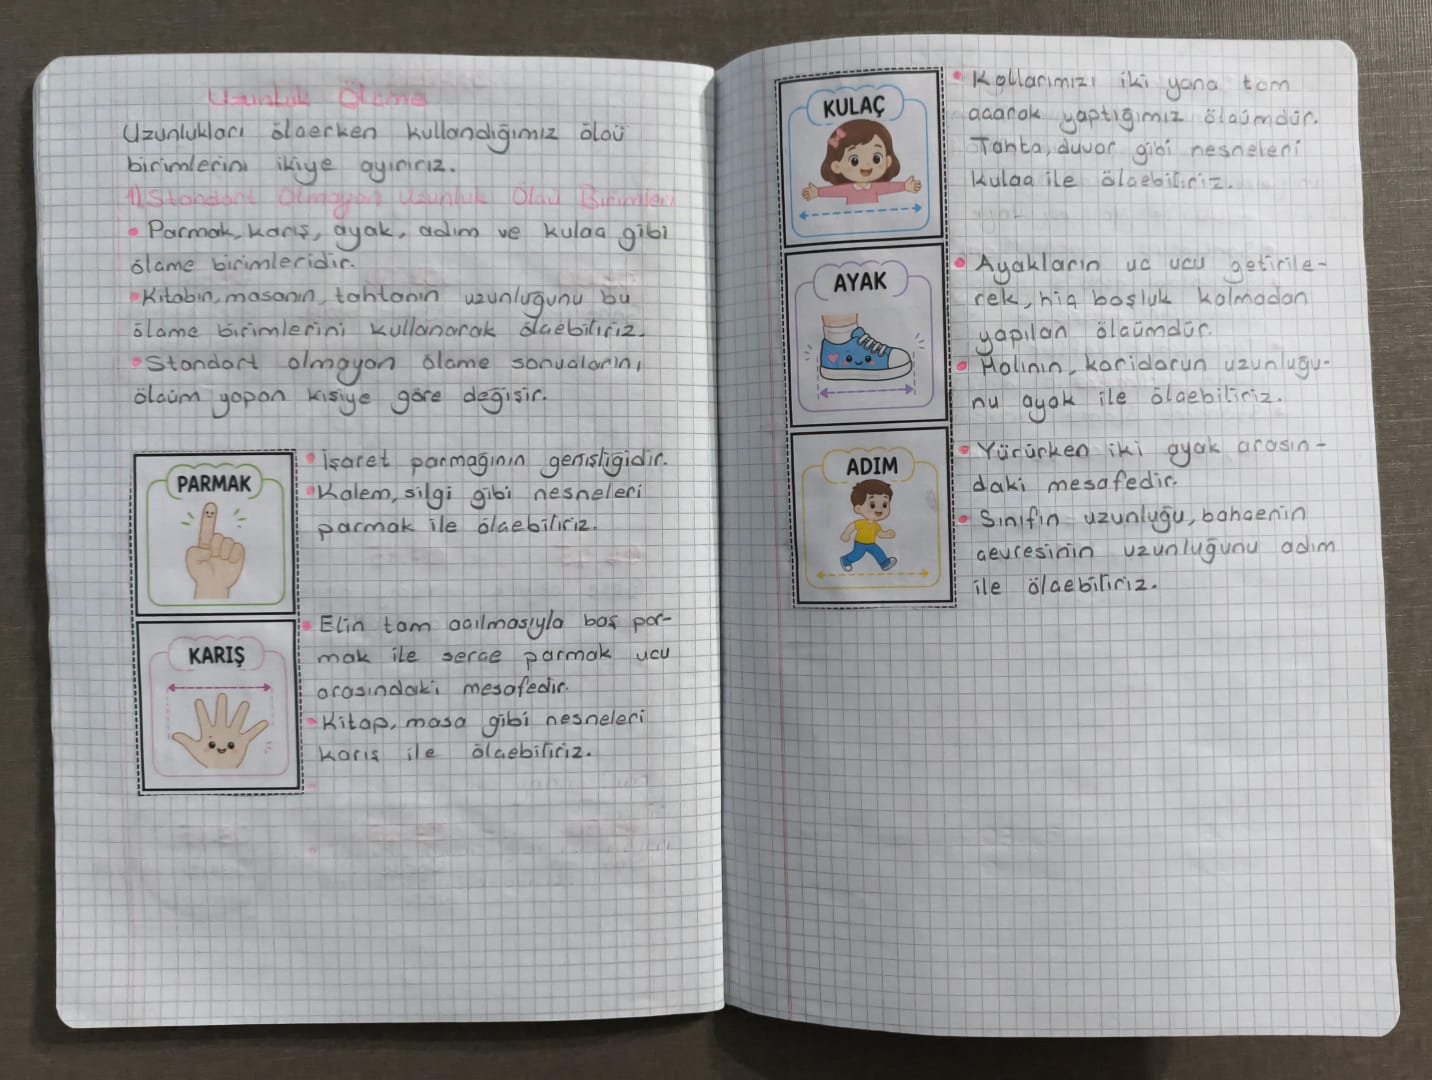 Uzunluk Ölçme
Uzunlukları ölçerken kullandığımız ölçü
birimlerini ikiye ayırırız.
1) Standart Olmayan Uzunluk Ölçü Birimleri
• Parmak, karış, ayak, adım ve kulaç gibi
ölçme birimleridir.
• Kitabın, masanın, tahtanın uzunluğunu bu
ölçme birimlerini kullanarak ölçebiliriz.
• Standart olmayan ölçme sonuçlarını,
ölçüm yapan kişiye göre değişir.
PARMAK
• İşaret parmağının genişliğidir.
• Kalem, silgi gibi nesneleri
parmak ile ölçebiliriz.
KARIŞ
• Elin tam açılmasıyla baş par-
mak ile serçe parmak ucu
arasındaki mesafedir.
• Kitap, masa gibi nesneleri
karış ile ölçebiliriz.
KULAÇ
• Kollarımızı iki yana tam
açarak yaptığımız ölçümdür.
Tahta, duvar gibi nesneleri
kulaç ile ölçebiliriz.
AYAK
• Ayakların uç ucu getirile-
rek, hiç boşluk kalmadan
yapılan ölçümdür.
• Halının, koridorun uzunluğu-
nu ayak ile ölçebiliriz.
ADIM
• Yürürken iki ayak arasın-
daki mesafedir.
• Sınıfın uzunluğu, bahçenin
çevresinin uzunluğunu adım
ile ölçebiliriz.